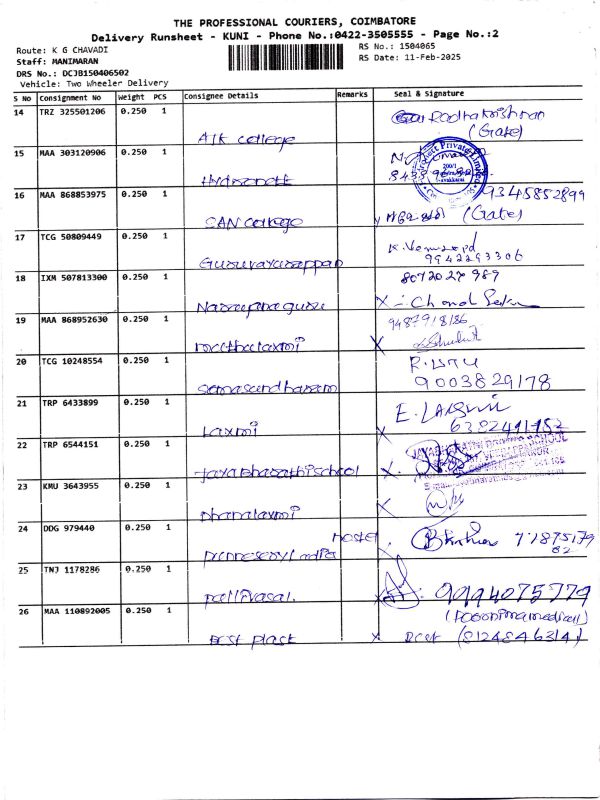 THE PROFESSIONAL COURIERS, COIMBATORE
Delivery Runsheet - KUNI - Phone No.:0422-3505555 - Page No.:2
Route: K G CHAVADI
RS No.: 1504065
Staff: MANIMARAN
RS Date: 11-Feb-2025
DRS No.: DCJB150406502
Vehicle: Two Wheeler Delivery
S No Consignment No Weight PCS Consignee Details Remarks Seal & Signature
14 TRZ 325501206 0.250 1 Radhakrishnan
(Gate)
AJK college
15 MAA 303120906 0.250 1
16 MAA 868853975 0.250 1 9345852899
CAN college (Gate)
17 TCG 50809449 0.250 1
9942293306
Guruvayurappan
18 IXM 507813300 0.250 1 8072027989
19 MAA 868952630 0.250 1 9487918186
20 TCG 10248554 0.250 1
9003829178
somasundharam
21 TRP 6433899 0.250 1 E. Lakshmi
Laxmi 6382491952
22 TRP 6544151 0.250 1
Jayabharathi school
23 KMU 3643955 0.250 1
Dhanalaxmi
24 DDG 979440 0.250 1 Hostel
25 TNJ 1178286 0.250 1 9994075779
pallivasal.
26 MAA 110892005 0.250 1 (Poornima medicall)
Best plast (8124846314)